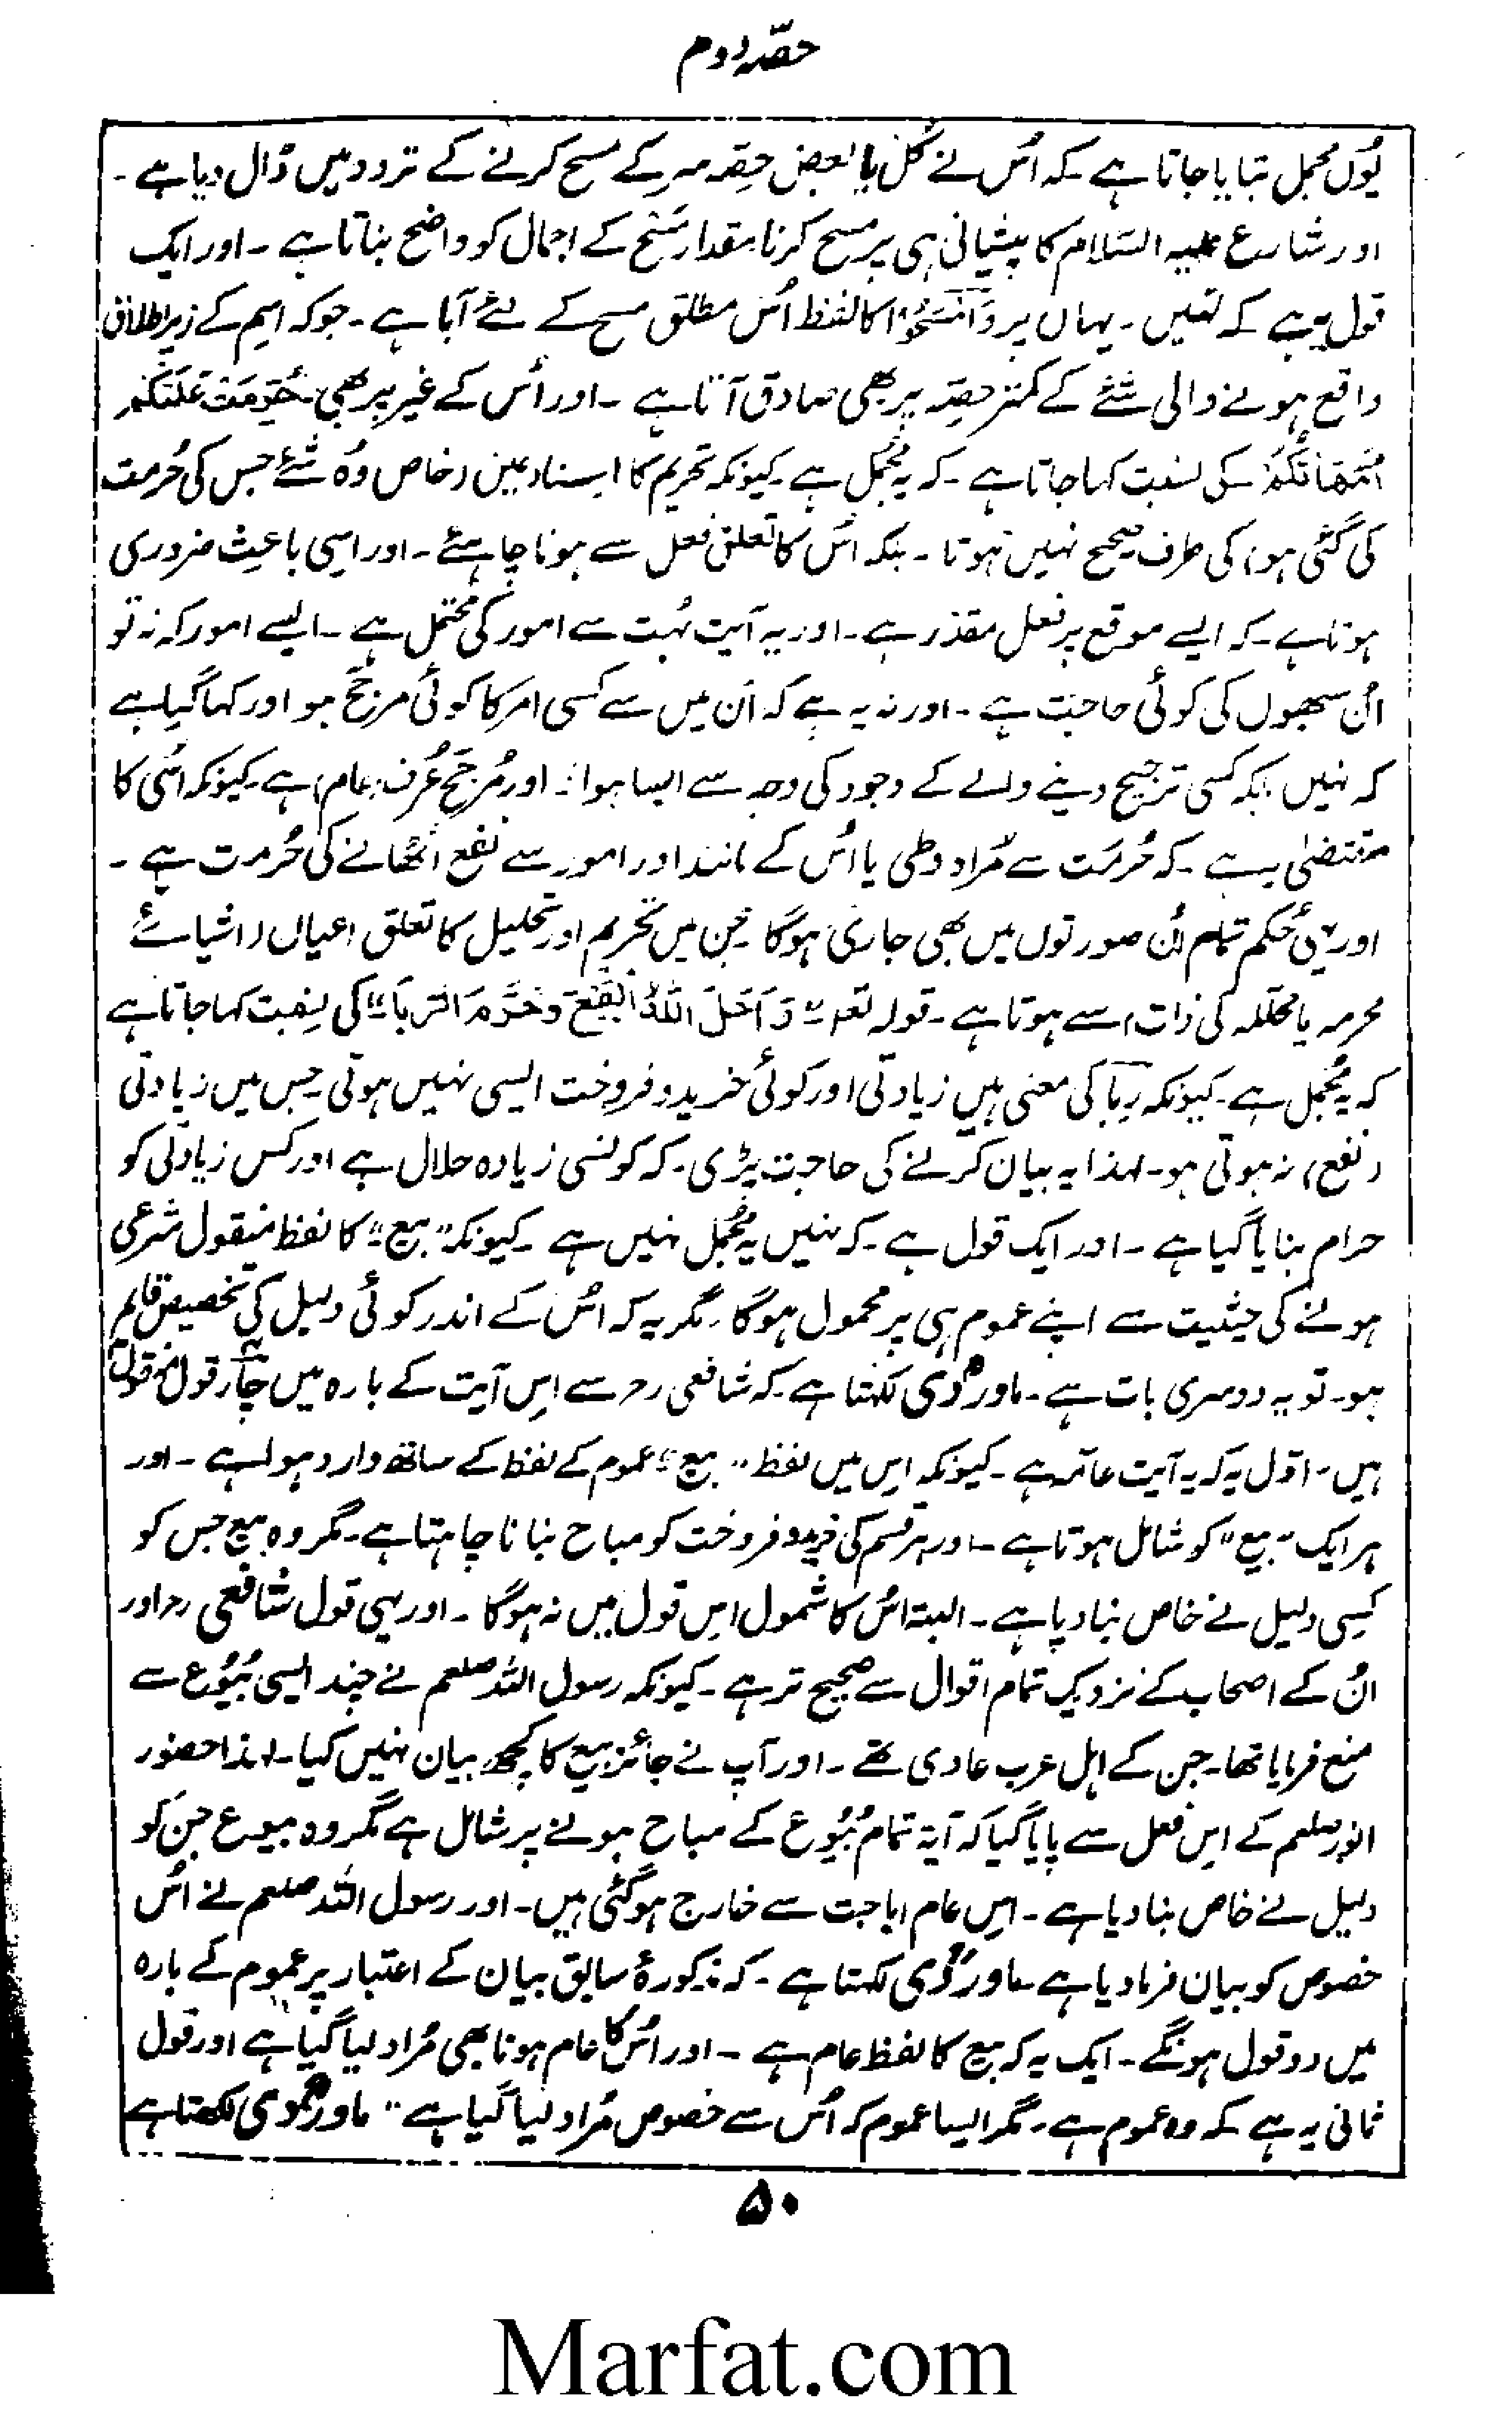 حصّہ دوم
یُوں مجمل بتایا جاتا ہے ۔ کہ اُس نے کُل یا بعض حِصّہ سر کے مسح کرنے کے تردد میں ڈال دیا ہے ۔
اور شارع علیہ السّلام کا پیشانی ہی پر مسح کرنا مقدار مَسْح کے اجمال کو واضح بناتا ہے ۔ اور ایک
قول یہ ہے کہ نہیں ۔ یہاں پر وَامْسَحُوْا کا لفظ اُس مطلق مسح کے لئے آیا ہے ۔ جو کہ اسم کے زیر اطلاق
واقع ہونے والی شَئے کے کمتر حصِّہ پر بھی صادق آتا ہے ۔ اور اُس کے غیر پر بھی ۔ حُرِّمَتْ عَلَیْکُمْ
اُمَّهَاتُكُمْ کی نسبت کہا جاتا ہے ۔ کہ یہ مُجمل ہے ۔ کیونکہ تحریم کا اسناد عین (خاص وہ شَئے جس کی حُرمت
کی گئی ہو) کی طرف صحیح نہیں ہوتا ۔ بلکہ اُس کا تعلق فعل سے ہونا چاہئے ۔ اور اسی باعث ضروری
ہوتا ہے ۔ کہ ایسے موقع پر فعل مقدر ہے ۔ اور یہ آیت بہت سے امور کی محتمل ہے ۔ ایسے امور کہ نہ تو
اُن سبھوں کی کوئی حاجت ہے ۔ اور نہ یہ ہے کہ اُن میں سے کسی امر کا کوئی مرجّح ہو اور کہا گیا ہے
کہ نہیں بلکہ کسی ترجیح دینے والے کے وجود کی وجہ سے ایسا ہوا ۔ اور مُرجّح عُرف (عام) ہے ۔ کیونکہ اسی کا
مقتضیٰ ہے ۔ کہ حُرمَت سے مُراد وطی یا اُس کے مانند اور امور سے نفع اُٹھانے کی حُرمت ہے ۔
اور یہی حُکم تمام اُن صورتوں میں بھی جاری ہوگا جن میں تحریم اور تحلیل کا تعلق اعیان (اشیائے
محرمہ یا محللہ کی ذات) سے ہوتا ہے ۔ قولہ تعہ " وَ اَحَلَّ اللّٰہُ الْبَیْعَ وَحَرَّمَ الرِّبَا" کی نسبت کہا جاتا ہے
کہ یہ مُجمل ہے ۔ کیونکہ رِبَا کی معنی ہیں زیادتی اور کوئی خرید و فروخت ایسی نہیں ہوتی جس میں زیادتی
(نفع) نہ ہوتی ہو ۔ لہذا یہ بیان کرنے کی حاجت پڑی ۔ کہ کونسی زیادہ حلال ہے اور کس زیادتی کو
حرام بنایا گیا ہے ۔ اور ایک قول ہے ۔ کہ نہیں یہ مُجمل نہیں ہے ۔ کیونکہ "بیع" کا لفظ منقول شرعی
ہونے کی حیثیت سے اپنے عموم ہی پر محمول ہوگا ۔ مگر یہ کہ اُس کے اندر کوئی دلیل کی تخصیص قایم
ہو ۔ تو یہ دوسری بات ہے ۔ ماوردی لکھتا ہے ۔ کہ شافعی رحہ سے اِس آیت کے بارہ میں چار قول منقول
ہیں ۔ اوّل یہ کہ یہ آیت عامّہ ہے ۔ کیونکہ اِس میں لفظ "بیع" عموم کے لفظ کے ساتھ وارد ہوا ہے ۔ اور
ہر ایک "بیع" کو شامل ہوتا ہے ۔ اور ہر قسم کی خرید و فروخت کو مباح بنانا چاہتا ہے ۔ مگر وہ بیع جس کو
کِسی دلیل نے خاص بنا دیا ہے ۔ البتہ اُس کا شمول اِس قول میں نہ ہوگا ۔ اور یہی قول شافعی رحہ اور
اُن کے اصحاب کے نزدیک تمام اقوال سے صحیح تر ہے ۔ کیونکہ رسول اللہ صلعم نے چند ایسی بُیُوع سے
منع فرمایا تھا ۔ جن کے اہل عرب عادی تھے ۔ اور آپ نے جائز بیع کا کچھ بیان نہیں کیا ۔ لہذا حضور
انور صلعم کے اِس فعل سے پایا گیا کہ آیۃ تمام بُیُوع کے مباح ہونے پر شامل ہے مگر وہ بیوع جن کو
دلیل نے خاص بنا دیا ہے ۔ اِس عام اباحت سے خارج ہو گئی ہیں ۔ اور رسول اللہ صلعم نے اُس
خصوص کو بیان فرما دیا ہے ۔ ماوردی لکھتا ہے ۔ کہ مذکورۂ سابق بیان کے اعتبار پر عموم کے بارہ
میں دو قول ہونگے ۔ ایک یہ کہ بیع کا لفظ عام ہے ۔ اور اُس کا عام ہونا بھی مُراد لیا گیا ہے اور قول
ثانی یہ ہے کہ وہ عموم ہے ۔ مگر ایسا عموم کہ اُس سے خصوص مُراد لیا گیا ہے " ماوردی لکھتا ہے
۵۰
Marfat.com